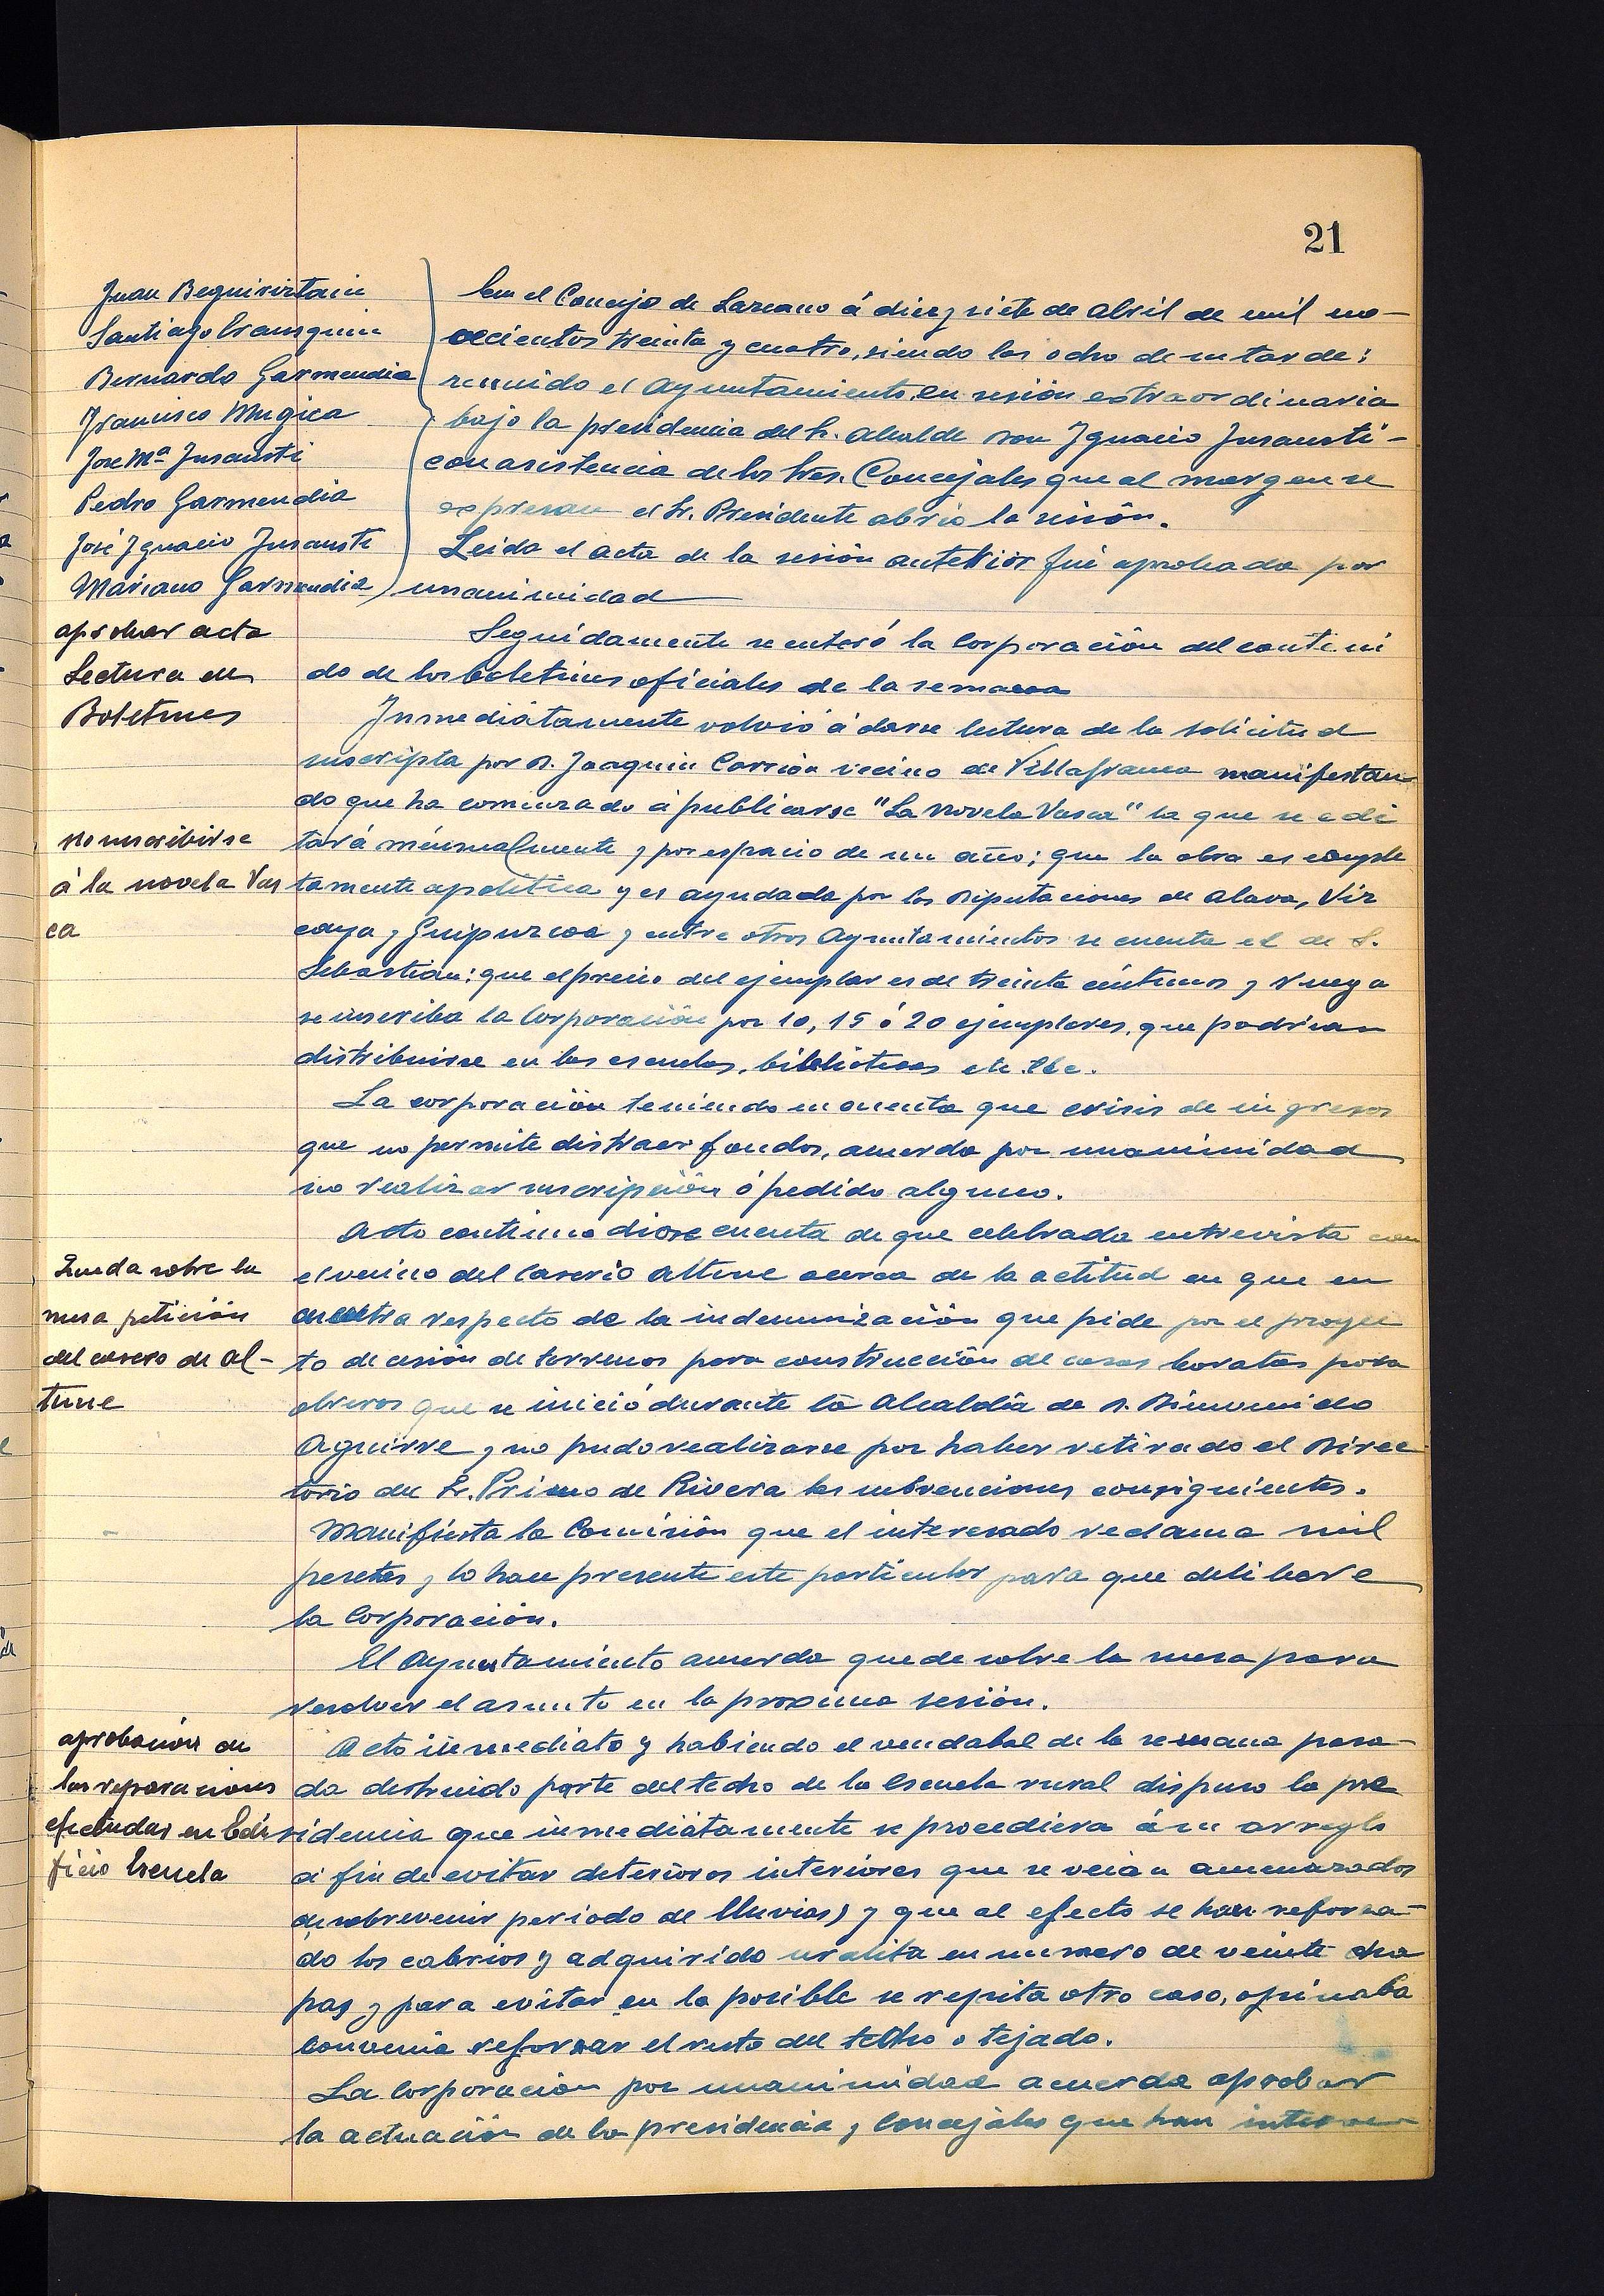 21
Juan Beguiristain
Santiago Irausquin
Bernardo Garmendia
Francisco Mugica
Jose Mª Insausti
Pedro Garmendia
José Ignacio Insausti
Mariano Garmendia
En el Concejo de Lazcano á diez y siete de Abril de mil no-
vecientos treinta y cuatro, siendo las ocho de su tarde:
reunido el Ayuntamiento en sesión extraordinaria
bajo la presidencia del Sr. Alcalde Don Ignacio Insausti-
con asistencia de los Sres. Concejales que al margen se
expresan el Sr. Presidente abrió la sesión.
Leida el acta de la sesión anterior fué aprobada por
unanimidad
aprobar acta
Lectura de
Boletines
Seguidamente se enteró la Corporación del conteni
do de los boletines oficiales de la semana
Inmediatamente volvió á darse lectura de la solicitud
suscripta por D. Joaquin Carrion vecino de Villafranca manifestan
do que ha comenzado á publicarse "La Novela Vasca" la que se edi
tará ménsualmente y por espacio de un año; que la obra es comple
no suscribirse
á la novela Vas
ca
tamente apolítica y es ayudada por las Diputaciones de Alava, Viz
caya y Guipuzcoa y entre otros Ayuntamientos se cuenta el de S.
Sebastian: que el precio del ejemplar es de treinta céntimos y ruega
se suscriba la Corporación por 10, 15 ó 20 ejemplares, que podrian
distribuirse en las escuelas, bibliotecas etc. etc.
La corporación teniendo en cuenta que crisis de ingresos
que no permite distraer fondos, acuerda por unanimidad
no realizar suscripción ó pedido alguno.
Acto continuo diose cuenta de que celebrada entrevista con
Queda sobre la
mesa petición
del casero de Al-
tune
el vecino del Caserio Altune acerca de la actitud en que en
cuentra respecto de la indemnización que pide por el proyec
to de cesión de terrenos para construcción de casas baratas para
obreros que se inició durante la Alcaldía de D. Bienvenido
Aguirre y no pudo realizarse por haber retirado el Direc
torio del Sr. Primo de Rivera las subvenciones consiguientes.
Manifiesta la Comisión que el interesado reclama mil
pesetas y lo hace presente este particular para que delibere
la Corporación.
El Ayuntamiento acuerda quede sobre la mesa para
resolver el asunto en la proxima sesión.
aprobación de
las reparaciones
efectudas en Edi
ficio Escuela
Acto inmediato y habiendo el vendabal de la semana pasa-
da destruido parte del techo de la Escuela rural dispuso la pre
sidencia que inmediátamente se procediera á su arreglo
á fin de evitar deterioros interiores que se veian amenazados
de sobrevenir periodo de lluvias) y que al efecto se han reforza-
do los cabrios y adquirido uralita en numero de veinte cha
pas y para evitar en lo posible se repita otro caso, opinaba
convenia reforzar el resto del techo o tejado.
La Corporación por unanimidad acuerda aprobar
la actuación de la presidencia y Concejales que han interve